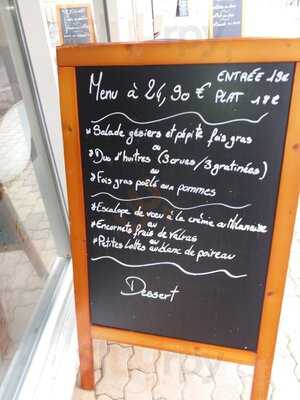 ENTRÉE 19€
Menu à 24,90 € PLAT 18€
* Salade gésiers et pépite fois gras
ou
* Duo d'huitres (3 crues/3 gratinées)
ou
* Fois gras poêlé aux pommes
* Escalope de veau à la crème ou Milanaise
ou
* Encornets frais de Valras
ou
* Petites lottes au blanc de poireau
Dessert